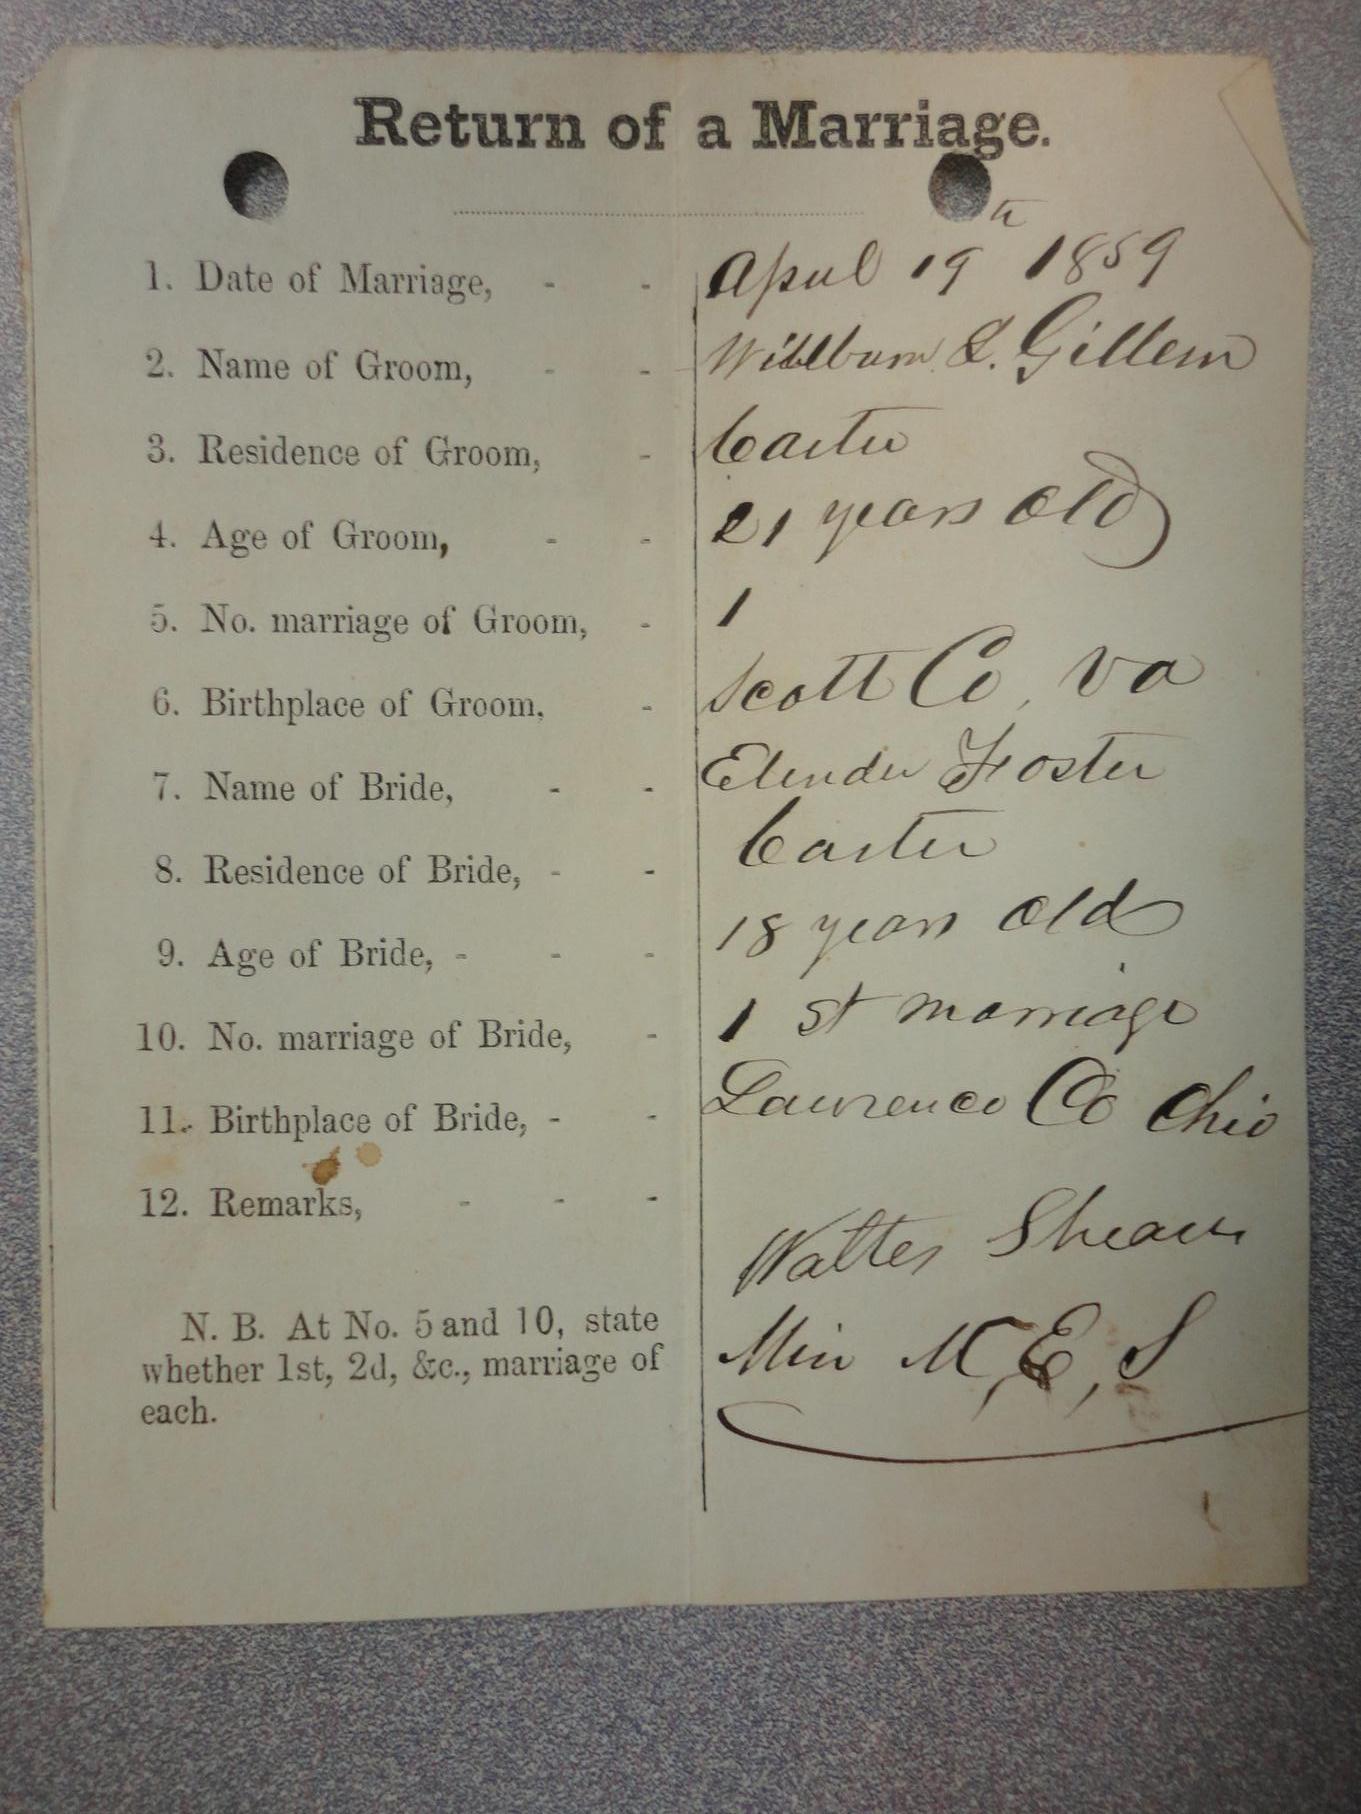 Return of a Marriage.
1. Date of Marriage, - - April 19th 1859
2. Name of Groom, - - Willburn S. Gillem
3. Residence of Groom, - Carter
4. Age of Groom, - - 21 years old
5. No. marriage of Groom, - 1
6. Birthplace of Groom, - Scott Co, Va
7. Name of Bride, - - Elender Foster
8. Residence of Bride, - - Carter
9. Age of Bride, - - - 18 years old
10. No. marriage of Bride, - 1 st marriage
11. Birthplace of Bride, - - Lawrence Co Ohio
12. Remarks, - - -
Walter Shearer
N. B. At No. 5 and 10, state
whether 1st, 2d, &c., marriage of
each.
Min M, E, S